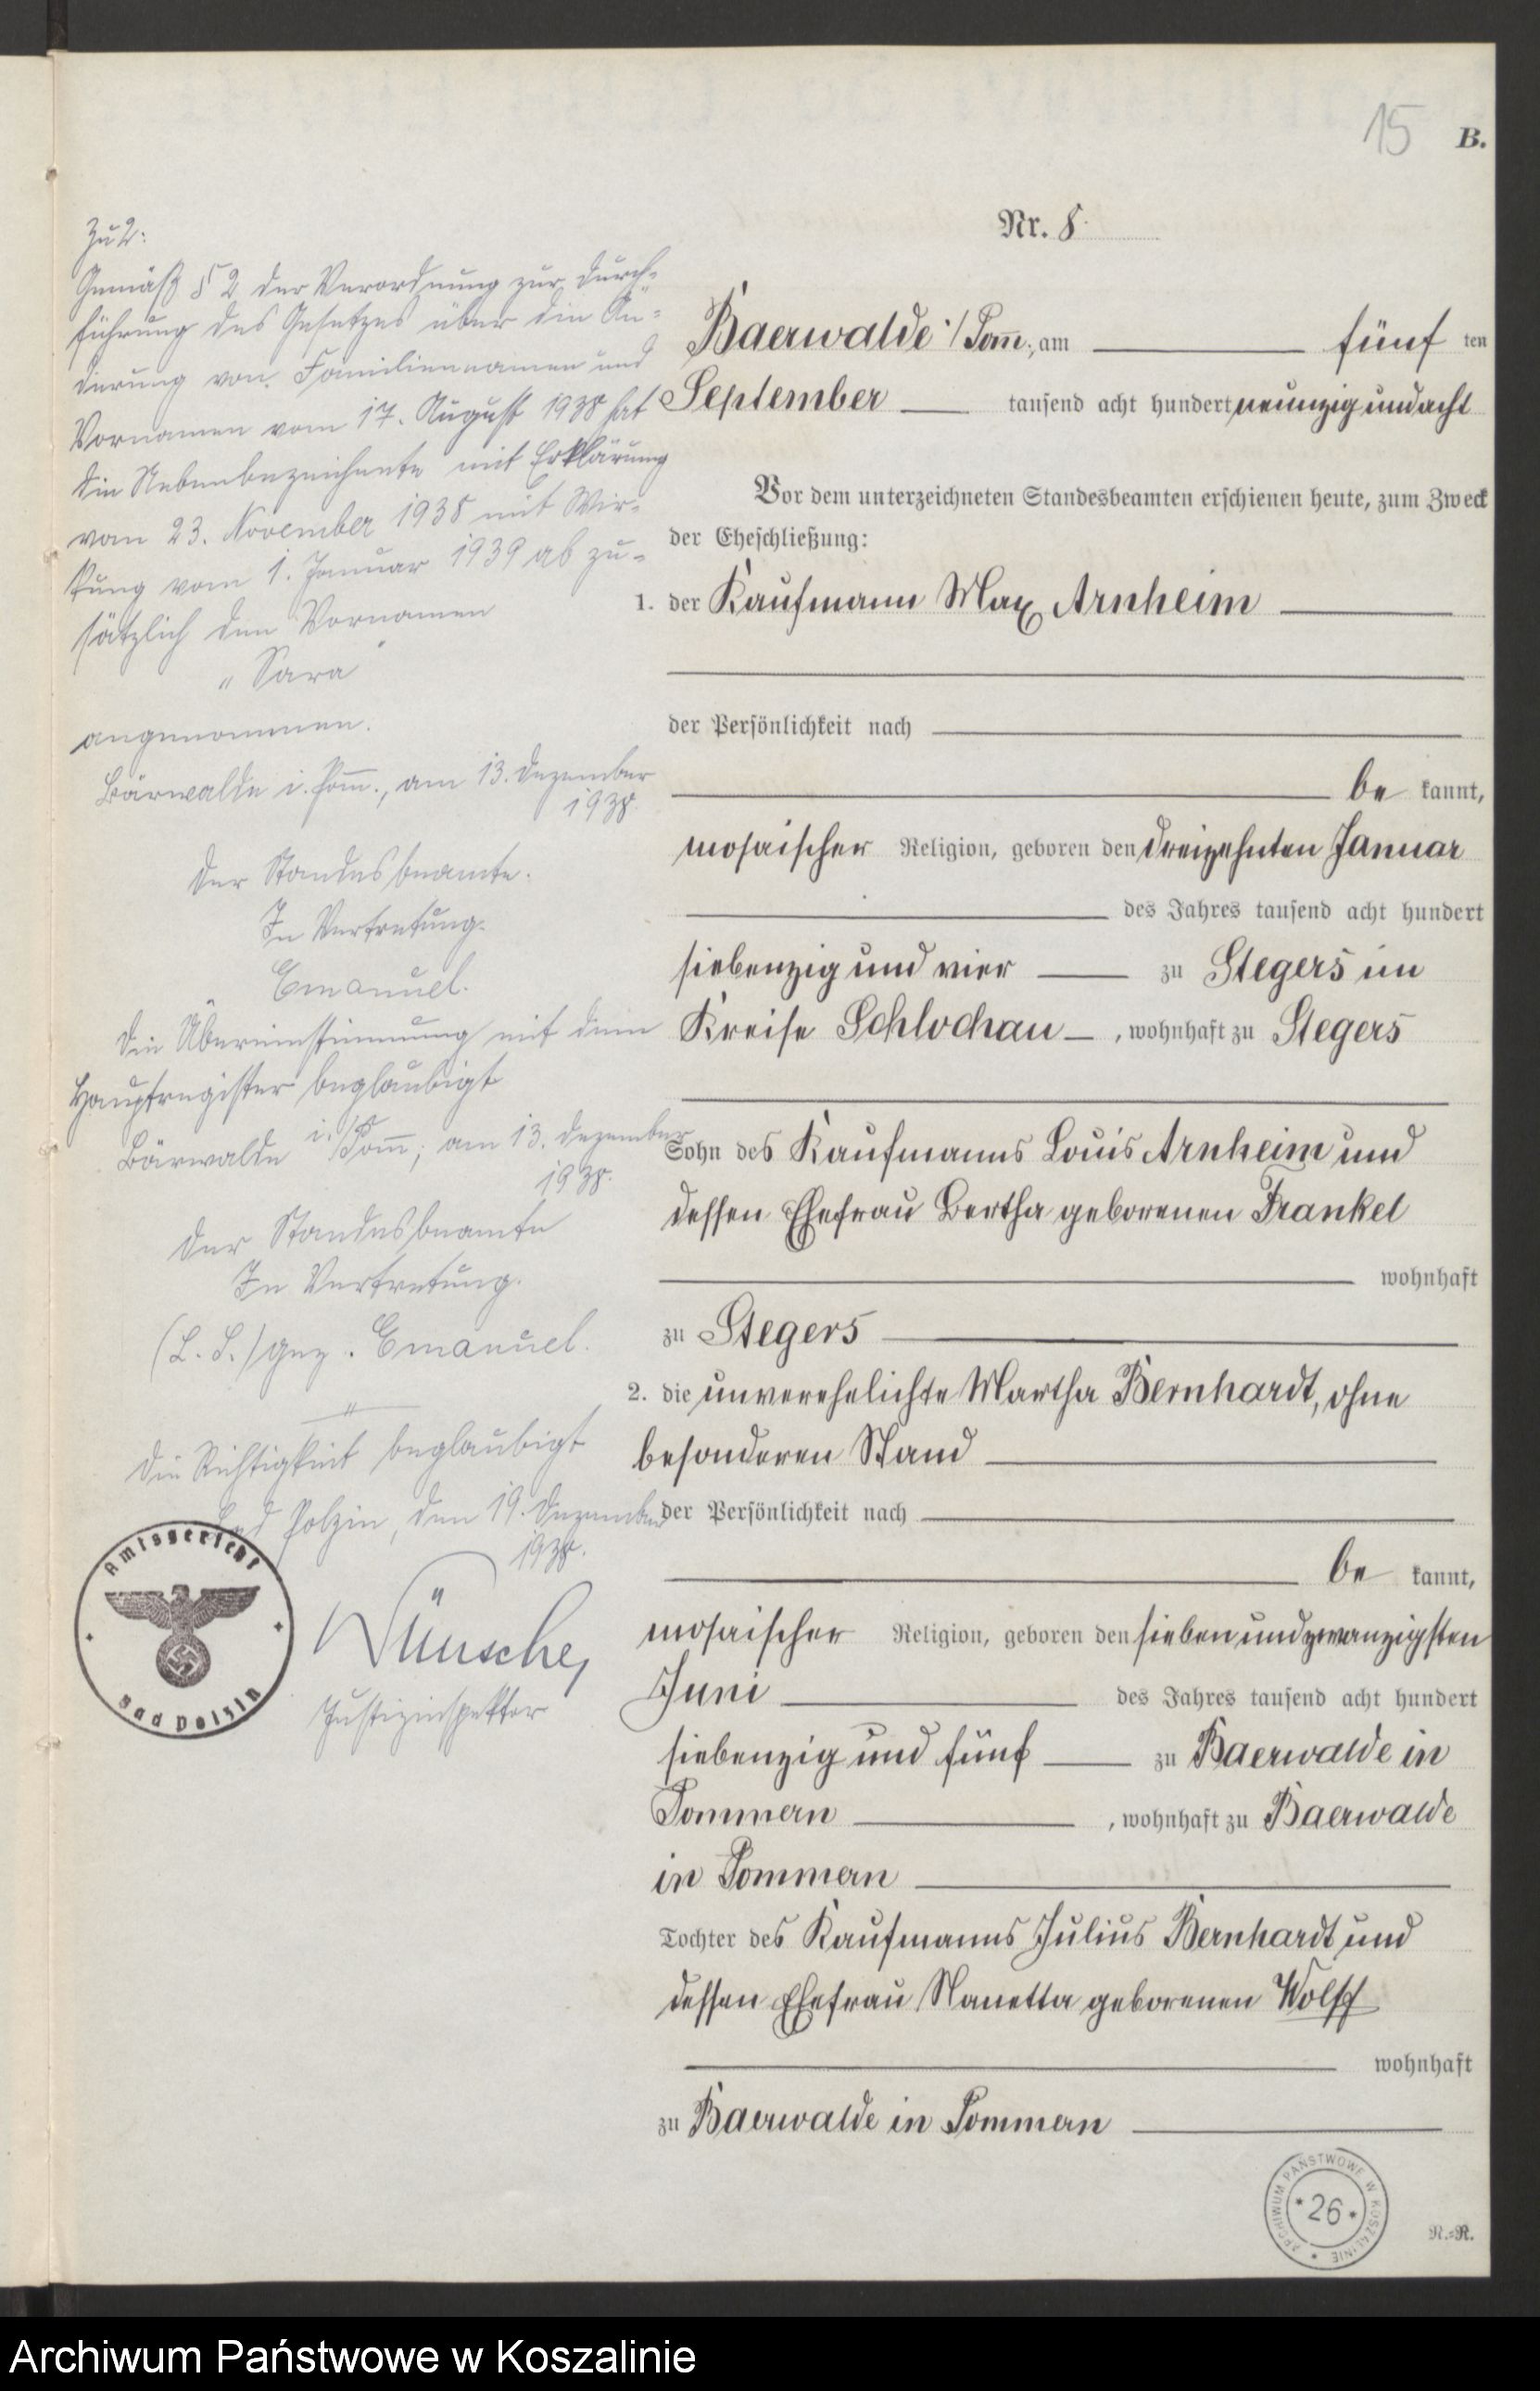 15 B.
Nr. 8.
Baerwalde i/Pom., am fünf ten
September tausend acht hundert neunzig und acht
Vor dem unterzeichneten Standesbeamten erschienen heute, zum Zweck
der Eheschließung:
1. der Kaufmann Max Arnheim
der Persönlichkeit nach
be kannt,
mosaischer Religion, geboren den dreizehnten Januar
des Jahres tausend acht hundert
siebenzig und vier zu Stegers im
Kreise Schlochau, wohnhaft zu Stegers
Sohn des Kaufmanns Louis Arnheim und
dessen Ehefrau Bertha geborenen Frankel
wohnhaft
zu Stegers
2. die unverehelichte Martha Bernhardt, ohne
besonderen Stand
der Persönlichkeit nach
be kannt,
mosaischer Religion, geboren den sieben und zwanzigsten
Juni des Jahres tausend acht hundert
siebenzig und fünf zu Baerwalde in
Pommern, wohnhaft zu Baerwalde
in Pommern
Tochter des Kaufmanns Julius Bernhardt und
dessen Ehefrau Nanetta geborenen Wolff
wohnhaft
zu Baerwalde in Pommern
Zu 2:
Gemäß § 2 der Verordnung zur Durch-
führung des Gesetzes über die Än-
derung von Familiennamen und
Vornamen vom 17. August 1938 hat
die Nebenbezeichnete mit Erklärung
vom 23. November 1938 mit Wir-
kung vom 1. Januar 1939 ab zu-
sätzlich den Vornamen
"Sara"
angenommen.
Bärwalde i. Pom., am 13. Dezember
1938.
Der Standesbeamte.
In Vertretung.
Emanuel.
Die Übereinstimmung mit dem
Hauptregister beglaubigt
Bärwalde i. Pom., am 13. Dezember
1938.
Der Standesbeamte
In Vertretung.
(L. S.) gez. Emanuel.
Die Richtigkeit beglaubigt
Bad Polzin, den 19. Dezember
1938.
Wünsche,
Justizinspektor
Amtsgericht
Bad Polzin
ARCHIWUM PAŃSTWOWE W KOSZALINIE
*26*
N.=R.
Archiwum Państwowe w Koszalinie